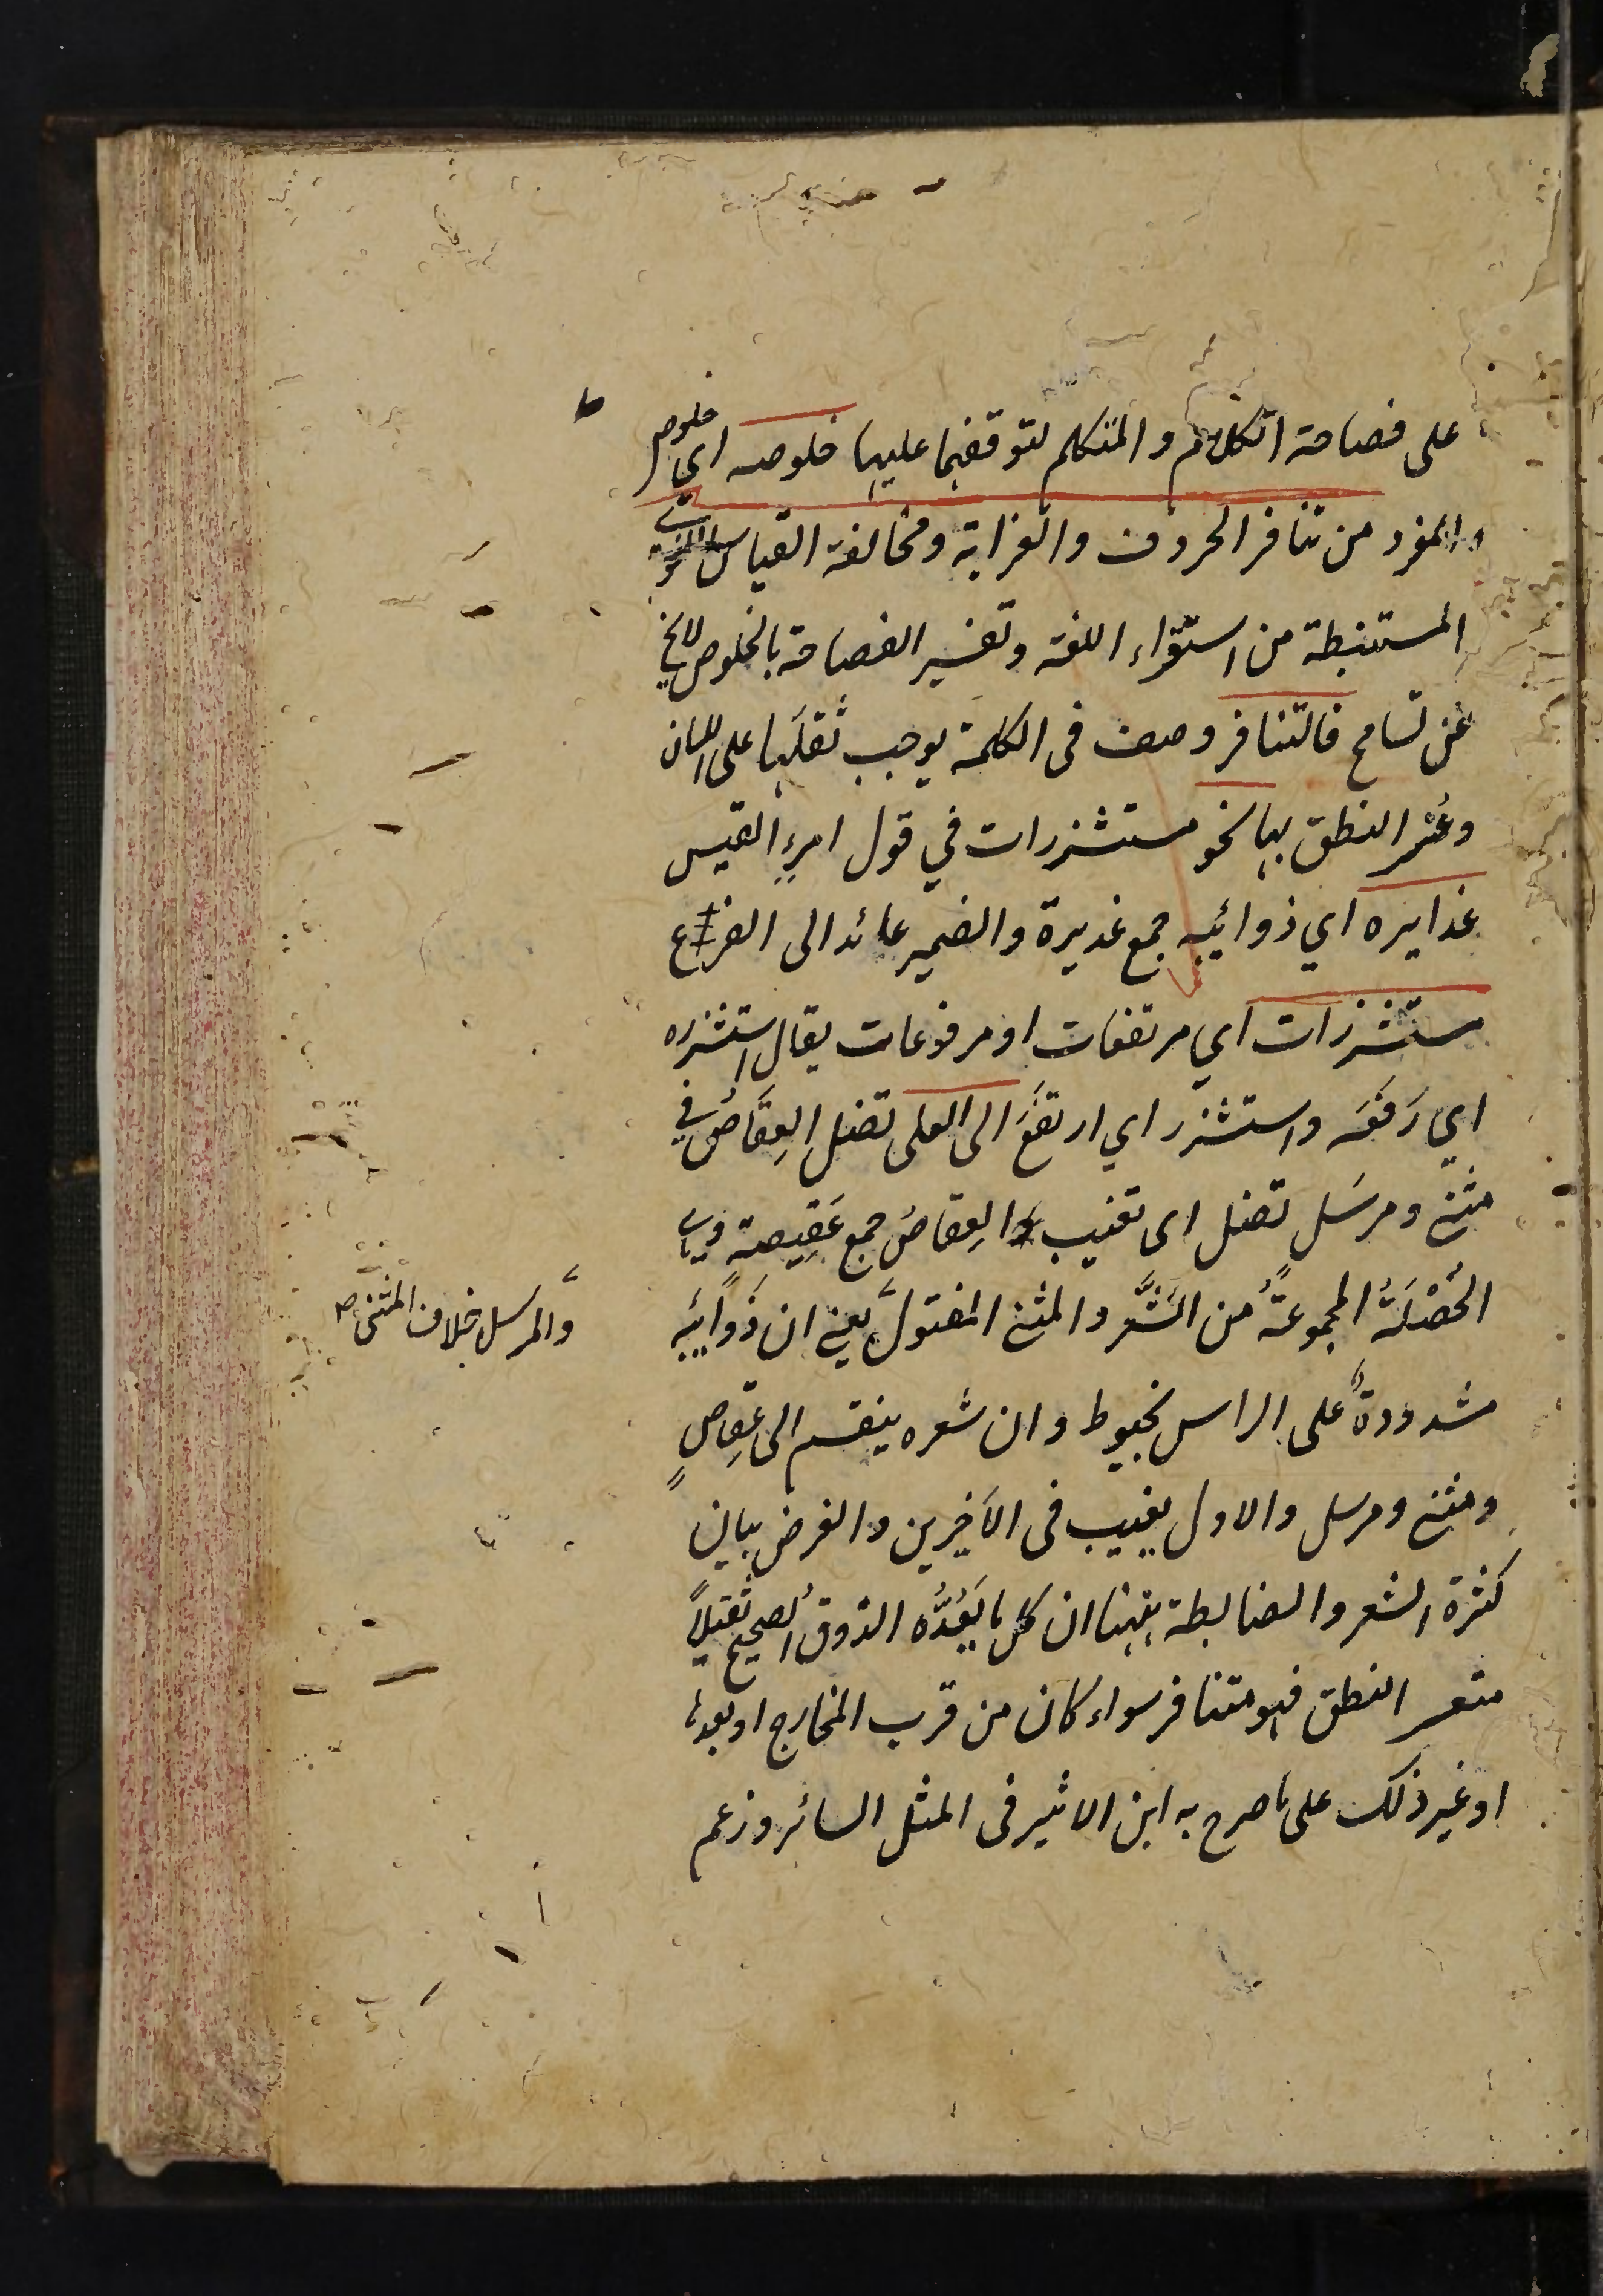 على فصاحة الكلام والمتكلم لتوقفهما عليها خلوصه اى خلوص
المفرد من تنافر الحروف والغرابة ومخالفة القياس اللغوى
المستنبطة من استقراء اللغة وتفسير الفصاحة بالخلوص لايخ
عن تسامح فالتنافر وصف فى الكلمة يوجب ثقلَها على اللسان
وعُسر النطق بها نحو مستشزرات في قول امرءِ القيس
غدايره اي ذوائبه جمع غديرة والضمير عائد الى الفرع
مستشزرات اي مرتفعات او مرفوعات يقال استشزره
اي رَفَعَه واستشزر اي ارتفَعَ الى العلى تضل العِقَاصُ في
مثنى ومرسَل تضل اى تغيب والعِقاصُ جمع عَقِيصةٍ وهى
الخُصْلَةُ المجموعَةُ من الشَّعر والمثنى المفتولُ يعني ان ذَوائِبَه
والمرسل خلاف المثنى صح
مشدودةٌ على الراس بخيوط وان شعره ينقسم الى عِقاصٍ
ومثنى ومرسل والاول يغيب فى الاَخِيرين والغرض بيان
كثرة الشعر والضابطة ههنا ان كل ما يَعُدُّه الذوق الصحيح ثقيلاً
متعسر النطق فهو متنافر سواء كان من قرب المخارج او بعدها
او غير ذلك على ما صرح به ابن الاثير فى المثل السائر وزعم